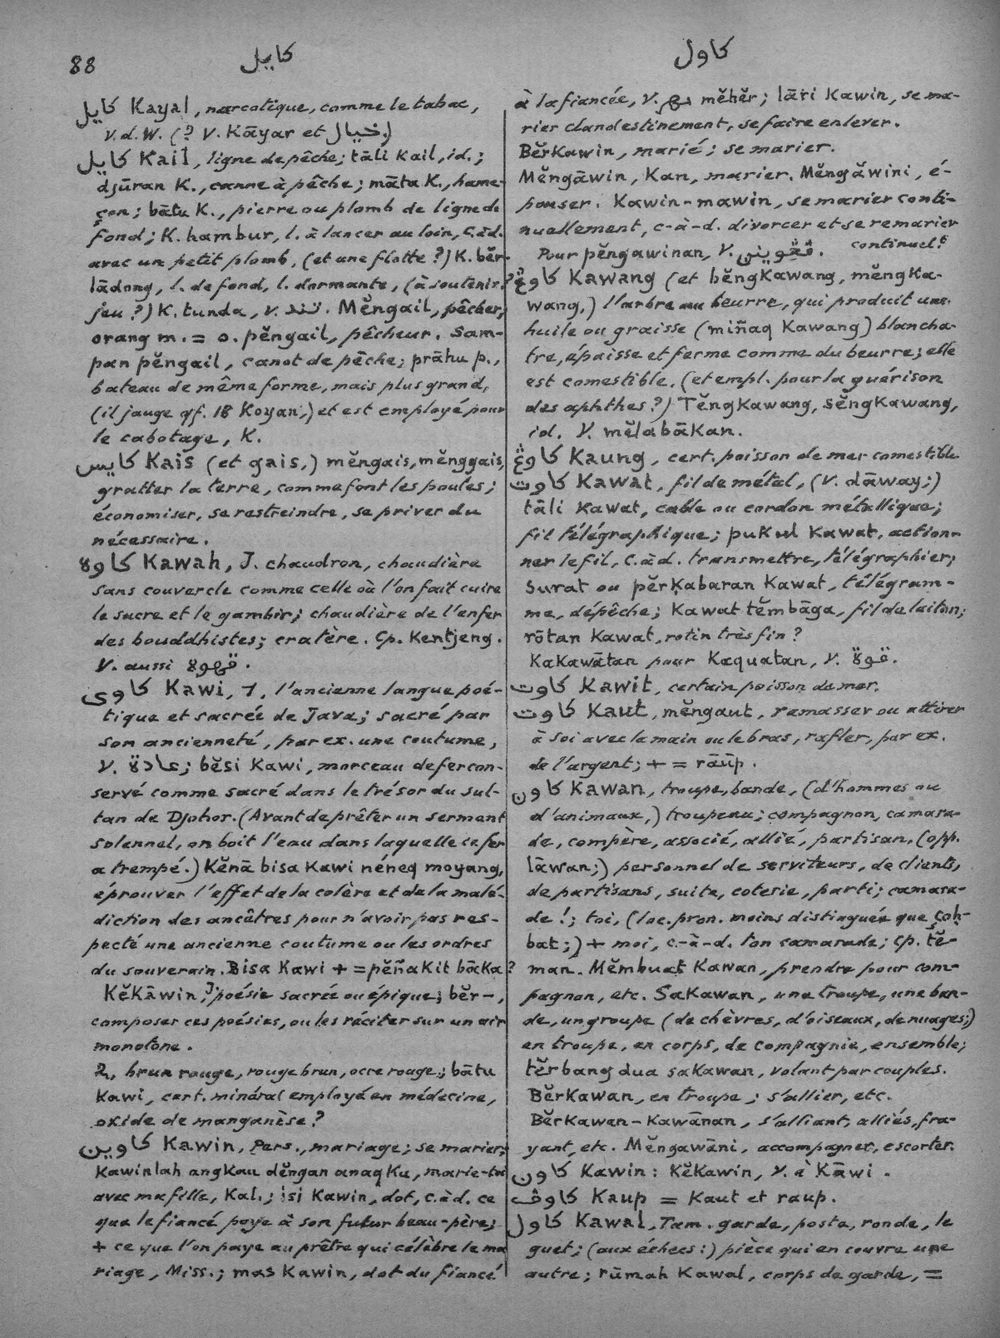 88
كايل
كاول
كايل Kayal, narcotique, comme le tabac,
V. d. W. (? V. Kāyar et خيال.)
كايل Kail, ligne de pêche; tāli Kail, id.;
djūran K., canne à pêche; māta K., hame-
çon; bātu K., pierre ou plomb de ligne de
fond; K. hambur, l. à lancer au loin, c.à.d.
avec un petit plomb, (et une flotte?) K. bĕr-
lādong, l. de fond, l. dormante, (à soutenir?
jeu?) K. tunda, v. تند. Mĕngail, pêcher;
orang m. = o. pĕngail, pêcheur. Sam-
pan pĕngail, canot de pêche; prāhu p.,
bateau de même forme, mais plus grand,
(il jauge qf. 18 Koyan,) et est employé pour
le cabotage, K.
كايس Kais (et gais,) mĕngais, mĕnggais,
gratter la terre, comme font les poules;
économiser, se restreindre, se priver du
nécessaire.
كاوه Kawah, J. chaudron, chaudière
sans couvercle comme celle où l'on fait cuire
le sucre et le gambir; chaudière de l'enfer
des bouddhistes; cratère. Cp. Kentjeng.
V. aussi قهوة.
كاوى Kawi, 1, l'ancienne langue poé-
tique et sacrée de Java; sacré par
son ancienneté, par ex. une coutume,
V. عادة; bĕsi Kawi, morceau de fer con-
servé comme sacré dans le trésor du sul-
tan de Djohor. (Avant de prêter un serment
solennel, on boit l'eau dans laquelle ce fer
a trempé.) Kĕnā bisa Kawi néneq moyang,
éprouver l'effet de la colère et de la malé-
diction des ancêtres pour n'avoir pas res-
pecté une ancienne coutume ou les ordres
du souverain. Bisa Kawi + = pĕñakit bāka?
Kĕkāwin, J. poésie sacrée ou épique; bĕr-,
composer ces poésies, ou les réciter sur un air
monotone.
2, brun rouge, rouge brun, ocre rouge; bātu
Kawi, cert. minéral employé en médecine,
oxide de manganèse?
كاوين Kawin, Pers., mariage; se marier;
Kawinlah angkau dĕngan anaqku, marie-toi
avec ma fille, Kal.; isi Kawin, dot, c.à.d. ce
que le fiancé paye à son futur beau-père;
+ ce que l'on paye au prêtre qui célèbre le ma
riage, Miss.; mas Kawin, dot du fiancé
à la fiancée, V. مهر mĕhĕr; lāri Kawin, se ma-
rier clandestinement, se faire enlever.
Bĕrkawin, marié; se marier.
Mĕngāwin, Kan, marier. Mĕngāwini, é-
pouser. Kawin-mawin, se marier conti-
nuellement, c-à-d. divorcer et se remarier
continuel.t
Pour pĕngawinan, V. قڠوينى.
كاوڠ Kawang (et bĕngkawang, mĕngka-
wang,) l'arbre au beurre, qui produit une
huile ou graisse (miñaq Kawang) blanchâ-
tre, épaisse et ferme comme du beurre; elle
est comestible, (et empl. pour la guérison
des aphthes?) Tĕngkawang, sĕngkawang,
id. V. mĕlabākan.
كاوڠ Kaung, cert. poisson de mer comestible.
كاوت Kawat, fil de métal, (V. dāway;)
tāli Kawat, cable ou cordon métallique;
fil télégraphique; pukul Kawat, action-
ner le fil, c.à.d. transmettre, télégraphier;
Surat ou pĕrkabaran Kawat, télégram-
me, dépêche; Kawat tĕmbāga, fil de laiton;
rōtan Kawat, rotin très fin?
Kakawātan pour Kaquatan, V. قوة.
كاوت Kawit, certain poisson de mer.
كاوت Kaut, mĕngaut, ramasser ou attirer
à soi avec la main ou le bras, rafler, par ex.
de l'argent; + = rāūp.
كاون Kawan, troupe, bande, (d'hommes ou
d'animaux,) troupeau; compagnon, camara-
de, compère, associé, allié, partisan, (opp.
lāwan;) personnel de serviteurs, de clients,
de partisans, suite, coterie, parti; camara-
de!; toi, (loc. pron. moins distinguée que çoh-
bat;) + moi, c.-à-d. ton camarade; cp. tĕ-
man. Mĕmbuat Kawan, prendre pour com-
pagnon, etc. Sakawan, une troupe, une ban-
de, un groupe (de chèvres, d'oiseaux, de nuages;)
en troupe, en corps, de compagnie, ensemble;
tĕrbang dua sakawan, volant par couples.
Bĕrkawan, en troupe; s'allier, etc.
Bĕrkawan-Kawānan, s'alliant, alliés, fra-
yant, etc. Mĕngawāni, accompagner, escorter.
كاون Kawin: Kĕkawin, V. à Kāwi.
كاوڤ Kaup = Kaut et raup.
كاول Kawal, Tam. garde, poste, ronde, le
guet; (aux échecs:) pièce qui en couvre une
autre; rūmah Kawal, corps de garde, =